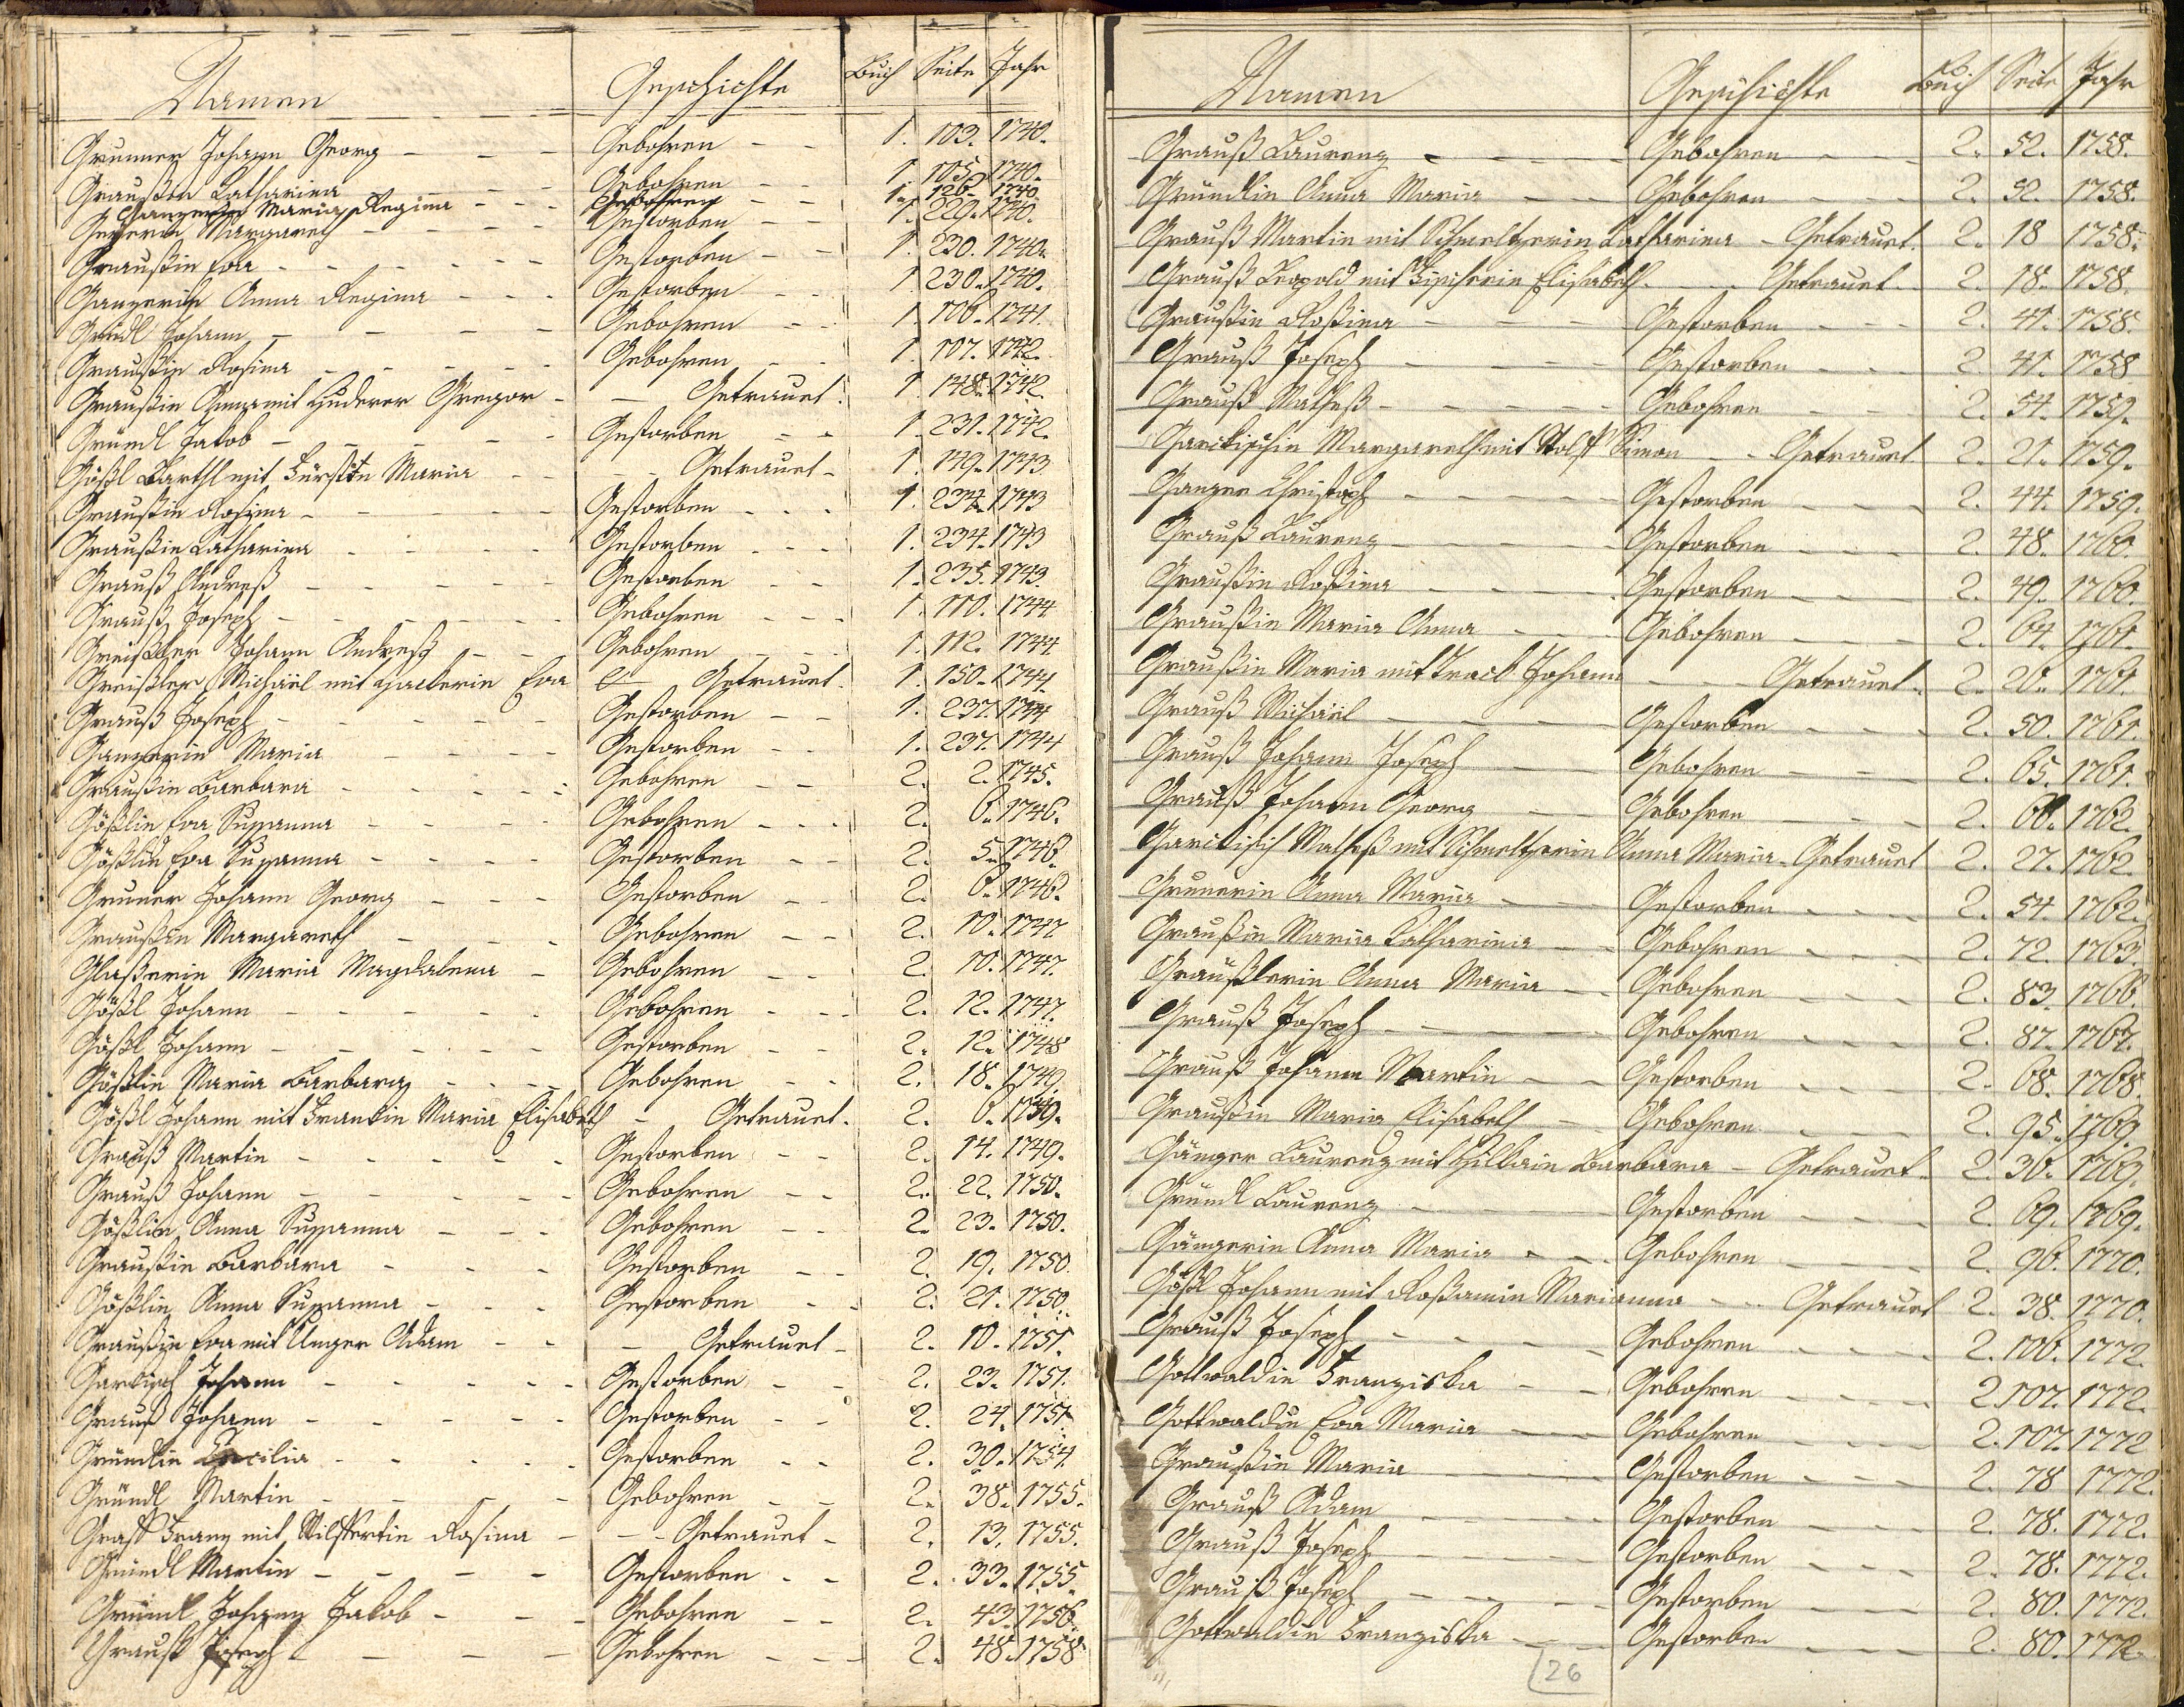 Namen Geschichte Buch Seite Jahr
Grunner Johann Georg - - - Gebohren - - 1. 103. 1740.
Graußin Catharina - - - Gebohren - - 1. 105. 1740.
Ganzerin Maria Regina - - - Gebohren - - 1. 126. 1740.
Margareth - - - Gestorben - - 1. 229. 1740.
Graußin Eva - - - Gestorben - - 1. 230. 1740.
Ganzerin Anna Regina - - - Gestorben - - 1. 230. 1740.
Gründl Johann - - - Gebohren - - 1. 106. 1741.
Graußin Rosina - - - Gebohren - - 1. 107. 1742.
Graußin Anna mit Huderer Gregor - - Getrauet. 1. 148. 1742.
Gründl Jakob - - - Gestorben - - 1. 231. 1742.
Gößl Barthl mit Maria - - Getrauet - 1. 149. 1743.
Graußin Rosina - - - Gestorben - - - 1. 234. 1743
Graußin Catharina - - - Gestorben - - - 1. 234. 1743
Grauß Andreß - - - Gestorben - - 1. 235. 1743.
Grauß Joseph - - - Gebohren - - - 1. 110. 1744
Greißler Johann Andreß - - - Gebohren - - - 1. 112. 1744
Greißler Michäel mit Hackerin Eva Getrauet. 1. 150. 1744.
Grauß Joseph - - - Gestorben - - 1. 237. 1744
Ganzerin Maria - - - Gestorben - - 1. 237. 1744
Graußin Barbara - - - Gebohren - - 2. 2. 1745.
Gößlin Eva Susanna - - - Gebohren - - - 2. 6. 1746.
Gößlin Eva Susanna - - - Gestorben - - 2. 5. 1746.
Gruner Johann Georg - - - Gestorben - - 2. 6. 1746.
Graußin Margareth - - - Gebohren - - 2. 10. 1747
Glaßerin Maria Magdalena - Gebohren - - 2. 10. 1747.
Gößl Johann - - - Gebohren - - - 2. 12. 1747.
Gößl Johann - - - Gestorben - - 2. 12. 1748
Gößlin Maria Barbara - - - Gebohren - - 2. 18. 1749.
Gößl Johann mit Frankin Maria Elisabeth - Getrauet. 2. 6. 1749.
Grauß Martin - - - Gestorben - - 2. 14. 1749.
Grauß Johann - - - Gebohren - - 2. 22. 1750.
Gößlin Anna Susanna - - - Gebohren - - 2. 23. 1750.
Graußin Barbara - - - Gestorben - - 2. 19. 1750.
Gößlin Anna Susanna - - - Gestorben - - 2. 21. 1750.
Graußin Eva mit Unger Adam - - - Getrauet - 2. 10. 1751.
Garkisch Johann - - - Gestorben - - 2. 23. 1751.
Grauß Johann - - - Gestorben - - 2. 24. 1751
Gründlin Cecilia - - - Gestorben - - 2. 30. 1754.
Gründl Martin - - - Gebohren - - 2. 38. 1755.
Graff Franz mit Rosina - - - Getrauet - 2. 13. 1755.
Gründl Martin - - - Gestorben - - 2. 33. 1755.
Gründl Johann Jakob - - - Gebohren - - 2. 43. 1756.
Grauß Joseph - - - Gebohren - - - 2. 48. 1758
Namen Geschichte Buch Seite Jahr
Grauß Laurenz - - - Gebohren - - - 2. 52. 1758.
Gründlin Anna Maria - - Gebohren - - - 2. 52. 1758.
Grauß Martin mit Schmeltzerin Catharina - Getrauet. 2. 18 1758.
Grauß Leopold mit Elisabeth - - Getrauet. 2. 18. 1758.
Graußin Roßina - - - Gestorben - - - 2. 41. 1758.
Grauß Joseph - - - Gestorben - - - 2. 41. 1758
Grauß Matheß - - - Gebohren - - - 2. 54. 1759.
Garckischin Margareth mit Simon - - Getrauet 2. 21. 1759.
Ganzer Christoph - - - Gestorben - - - 2. 44. 1759.
Grauß Laurenz - - - Gestorben - - - 2. 48. 1760.
Graußin Roßina - - - Gestorben - - - 2. 49. 1760.
Graußin Maria Anna - - - Gebohren - - - 2. 64. 1761.
Graußin Maria mit Johann - - Getrauet. 2. 26. 1761.
Grauß Michäel - - - Gestorben - - - 2. 50. 1761.
Grauß Johann Joseph - - Gebohren - - - 2. 65. 1761.
Grauß Johann Georg - - Gebohren - - - 2. 1762.
Garckisch Matheß mit Schmeltzerin Anna Maria - Getrauet 2. 27. 1762.
Grunerin Anna Maria - - Gestorben - - - 2. 54. 1762.
Graußin Maria Catharina - - Gebohren - - - 2. 72. 1763.
Graußlerin Anna Maria - - Gebohren - - - 2. 83. 1766.
Grauß Joseph - - - Gebohren - - - 2. 87. 1767.
Grauß Johann Martin - - Gestorben - - - 2. 68. 1768.
Graußin Maria Elisabeth - Gebohren - - - 2. 95. 1769.
Gänger Laurenz mit Barbara - Getrauet - 2. 36. 1769.
Gründl Laurenz - - - Gestorben - - - 2. 69. 1769.
Gängerin Anna Maria - - Gebohren - - - 2. 96. 1770.
Gößl Johann mit Marianna - - Getrauet 2. 38. 1770.
Grauß Joseph - - - Gebohren - - - 2. 106. 1772.
Gottwaldin Franziska - - Gebohren - - - 2. 107. 1772.
Gottwaldin Eva Maria - - Gebohren - - - 2. 107. 1772
Graußin Maria - - - Gestorben - - - 2. 78 1772.
Grauß Adam - - - Gestorben - - - 2. 78. 1772.
Grauß Joseph - - - Gestorben - - - 2. 78. 1772.
Grauß Joseph - - - Gestorben - - - 2. 80. 1772.
Gottwaldin Franziska - - Gestorben - - - 2. 80. 1772.
26